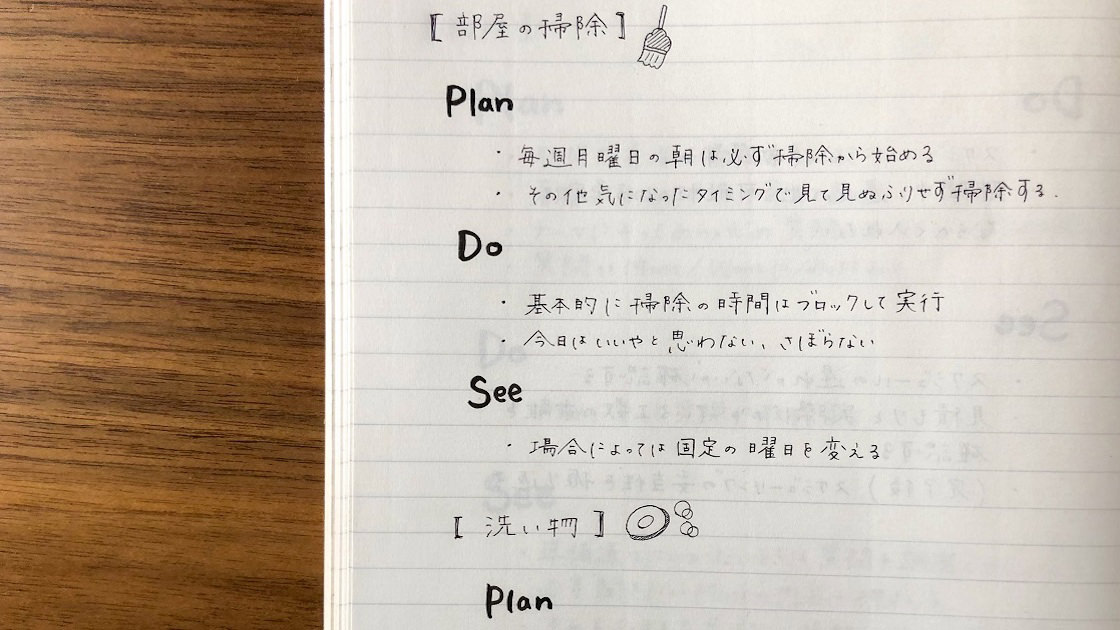 【部屋の掃除】
Plan
・毎週月曜日の朝は必ず掃除から始める
・その他気になったタイミングで見て見ぬふりせず掃除する.
Do
・基本的に掃除の時間はブロックして実行
・今日はいいやと思わない、さぼらない
See
・場合によっては固定の曜日を変える
【洗い物】
Plan